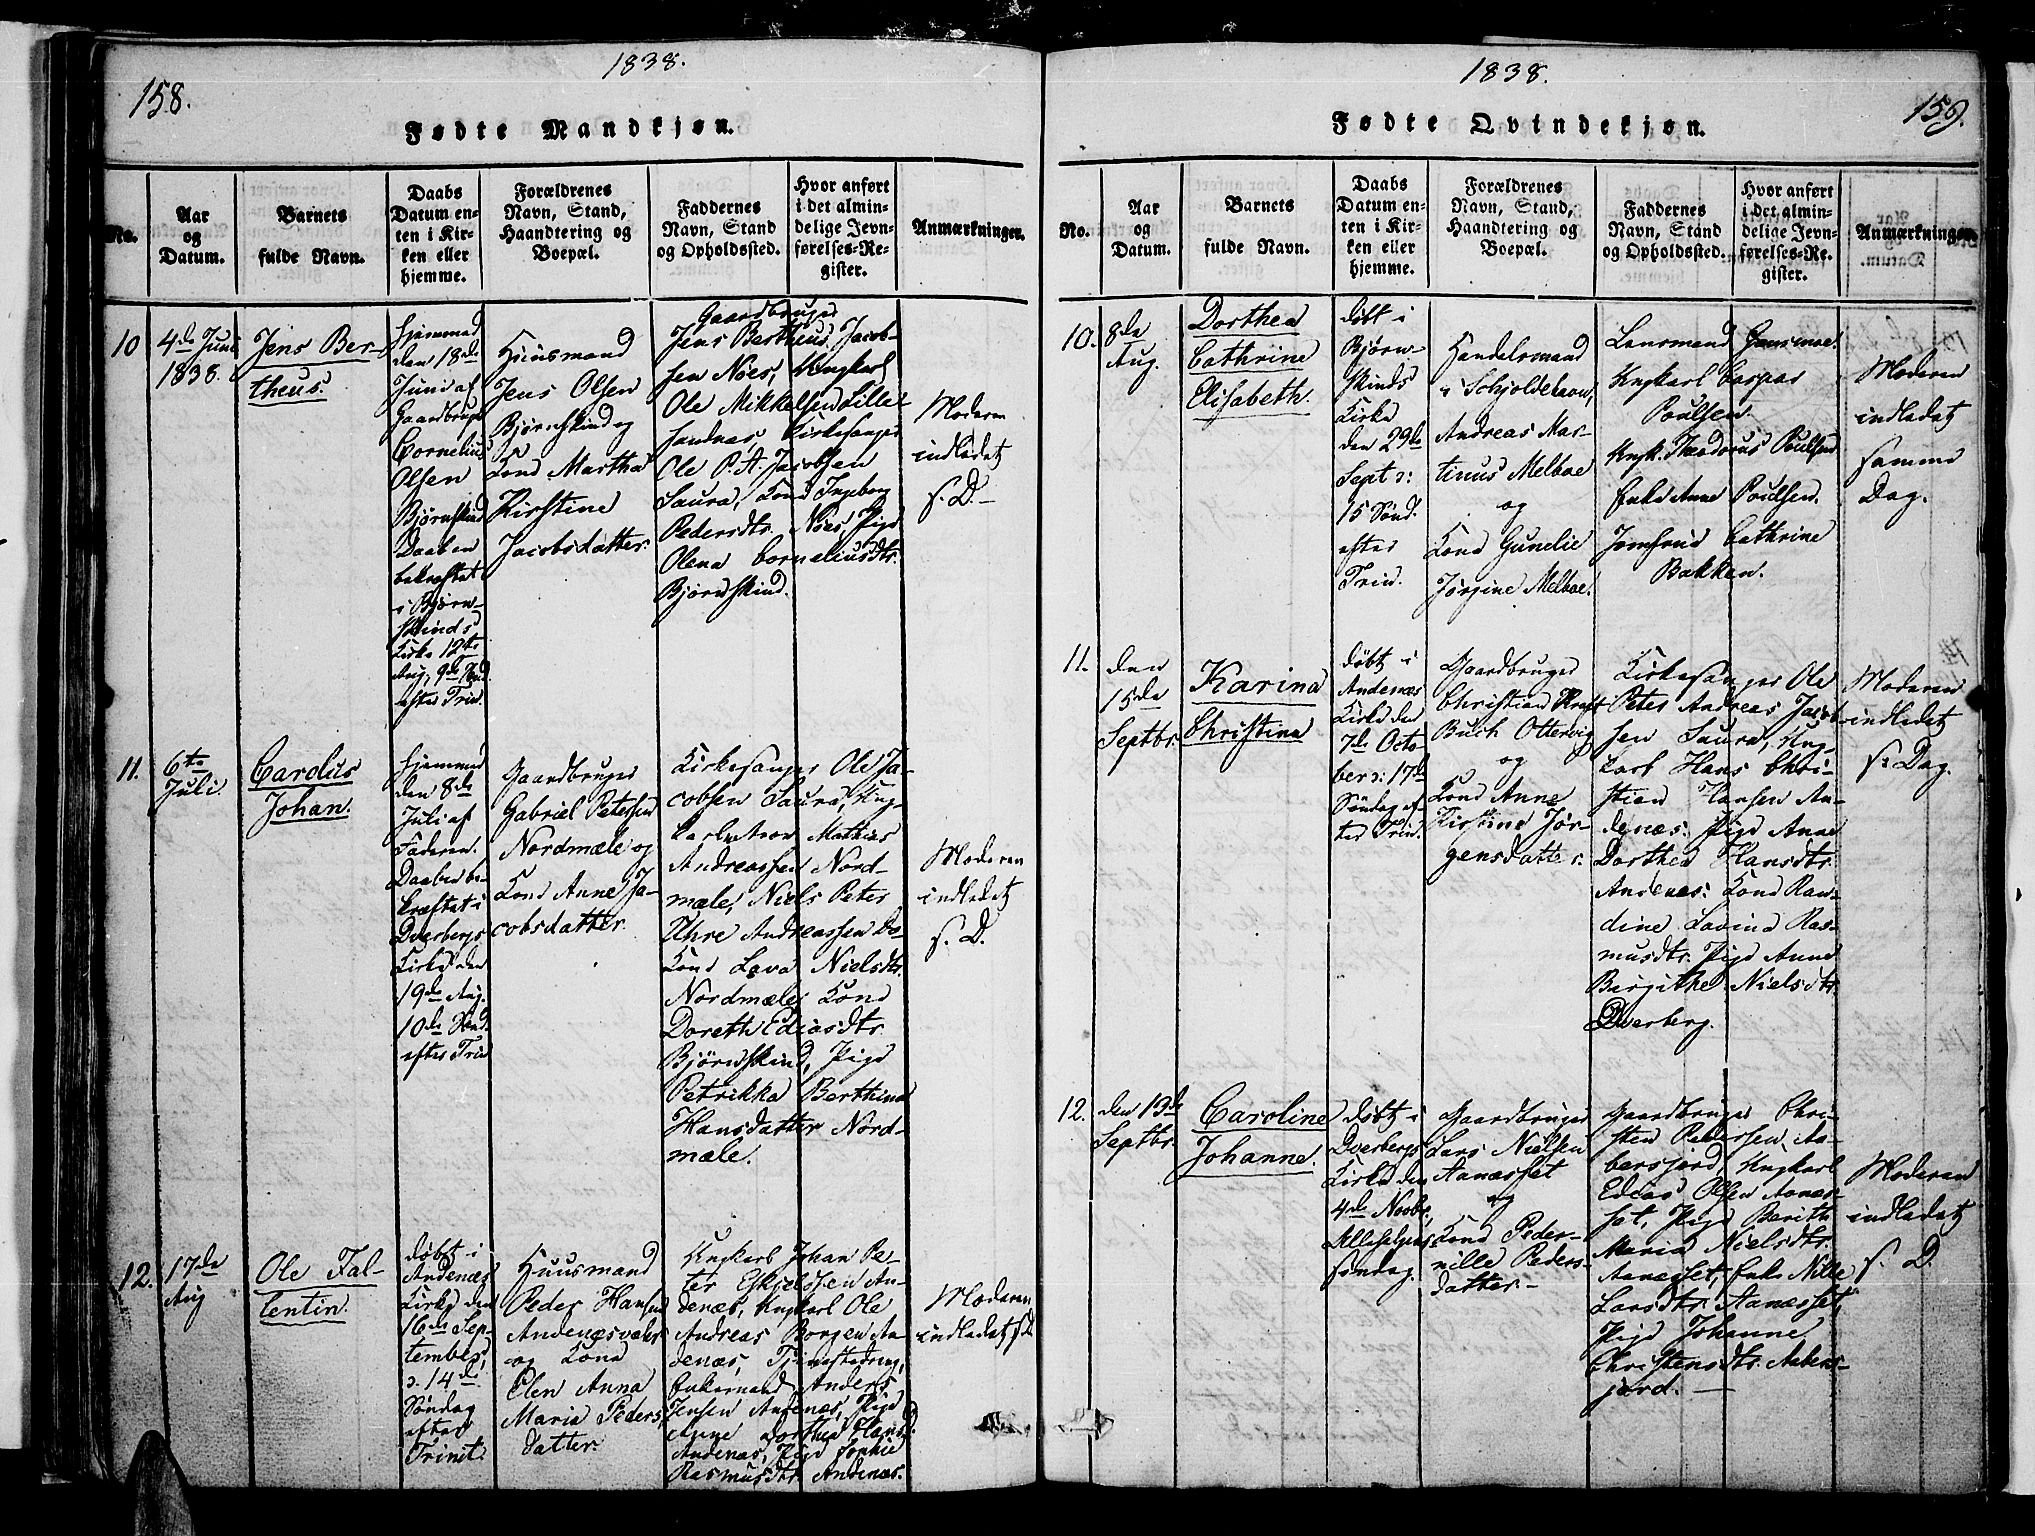 158.
1838.
Fødte Mandkjøn.
No.
Aar
og
Datum.
Barnets
fulde Navn.
Daabs
Datum en-
ten i Kir-
ken eller
hjemme.
Forældrenes
Navn, Stand,
Haandtering og
Boepæl.
Faddernes
Navn, Stand
og Opholdssted.
Hvor anført
i det almin-
delige Jevn-
førelses-Re-
gister.
Anmærkninger.
10
4de Juni
1838.
Jens Ber-
theus.
Hjemmed
den 18de
Juni af
Gaardbruger
Cornelius
Olsen
Bjørnskind
Daaben
bekræftet
i Bjørn-
skinds
Kirke 12te
Aug, 9de Sønd.
efter Trin.
Huusmand
Jens Olsen
Bjørnskind og
Kone Martha
Kirstine
Jacobsdatter.
Gaardbruger
Jens Bertheus Jacob-
sen Noes, Ungkarl
Ole Mikkelsen Lille-
sandnæs, Kirkesanger
Ole P. A. Jacobsen
Saura, Kone Ingeborg
Pedersdtr. Noes, Pige
Olena Corneliusdtr.
Bjørnskind.
Moderen
indledet
s. D.-
11.
6te
Juli.
Cardus
Johan.
Hjemmed
den 8de
Juli af
Faderen.
Daaben be-
kræftet i
Dverbergs
Kirke den
19de Aug.
10de Sønd.
efter Trin
Gaardbruger
Gabriel Petersen
Nordmæle og
Kone Anne Ja-
cobsdatter.
Kirkesanger Ole Ja-
cobsen Saura, Ung-
karl Aron Mathias
Andreassen Nord-
mæle, Niels Peter
Uhre Andreassen Do-
Kone Lava Nielsdtr.
Nordmæle, Kone
Doreth Ediasdtr.
Bjørnskind, Pige
Petrikka Berthina
Hansdatter Nord-
mæle.
Moderen
indledet
s. D.
12.
17de
Aug
Ole Fal-
lentin.
døbt i
Andenæs
Kirke den
16de Sep-
tember,
ɔ: 14de
Søndag
efter
Trinit.
Huusmand
Peder Hansen
Andenæsvaler
og Kone
Elen Anna
Maria Peders-
datter.
Ungkarl Johan Pe-
ter Eskjelssen An-
denæs, Ungkarl Ole
Andreas Borgen An-
denæs, Tjenestedreng,
Enkemand Anders
Jensen Andenæs, Pige
Anne Dorthea Hansd.
Andenæs, Pige Sophie
Rasmusdtr. Andenæs.
Moderen
indledet s. D.
1838.
159.
Fødte Qvindekjøn.
No.
Aar
og
Datum.
Barnets
fulde Navn.
Daabs
Datum en-
ten i Kir-
ken eller
hjemme.
Forældrenes
Navn, Stand,
Haandtering og
Boepæl.
Faddernes
Navn, Stand
og Opholdssted.
Hvor anført
i det almin-
delige Jevn-
førelses-Re-
gister.
Anmærkninger.
10.
8de
Aug.
Dorthea
Cathrine
Elisabeth.
døbt i
Bjørn-
skinds
Kirke
den 29de
Sept ɔ:
15 Sønd.
efter
Trin.
Handelsmand
i Schjoldehavn,
Andreas Mar-
tinus Melboe
og
Kone Gunelie
Jørgine Melboe.
Lensmand
Ungkarl Caspar
Poulsen.
Ungk. Theodorus Poulsen
Enke Anne Poulsen.
Jomfrue Cathrine
Bakken.
Moderen
indledet
samme
Dag.
11.
den
15de
Septbr.
Karina
Christina
døbt i
Andenæs
Kirke den
7de Octo-
ber ɔ: 17de
Søndag ef-
ter Trin.
Gaardbruger
Christian Kraft
Buch Ottervig
og
Kone Anne
Kirstine Jør-
gensdatter.
Kirkesanger Ole
Peter Andreas Jacob-
sen Saura, Ung-
karl Hans Chri-
stian Hansen An-
denæs. Pige Anne
Dorthea Hansdtr.
Andenæs: Kone Ran-
dine Lavina Ras-
musdtr. Pige Anne
Birgithe Nielsdtr.
Dverberg.
Moderen
indledet
s: Dag.
12.
den 13de
Septbr.
Caroline
Johanne.
døbt i
Dverbergs
Kirke den
4de Novbr.
Allehelgens
søndag.
Gaardbruger
Lars Nielsen
Aanæsset
og
Kone Peder-
nille Peders-
datter.-
Gaardbruger Chri-
sten Pedersen, Aa-
bersjord, Ungkarl
Edias Olsen Aanæs-
set, Pige Berith
Maria Nielsdtr.
Aanæsset, Enke Nille
Larsdtr. Aanæsset,
Pige Johanne
Christensdtr. Aabers-
jord. —
Moderen
indledet
s. D.